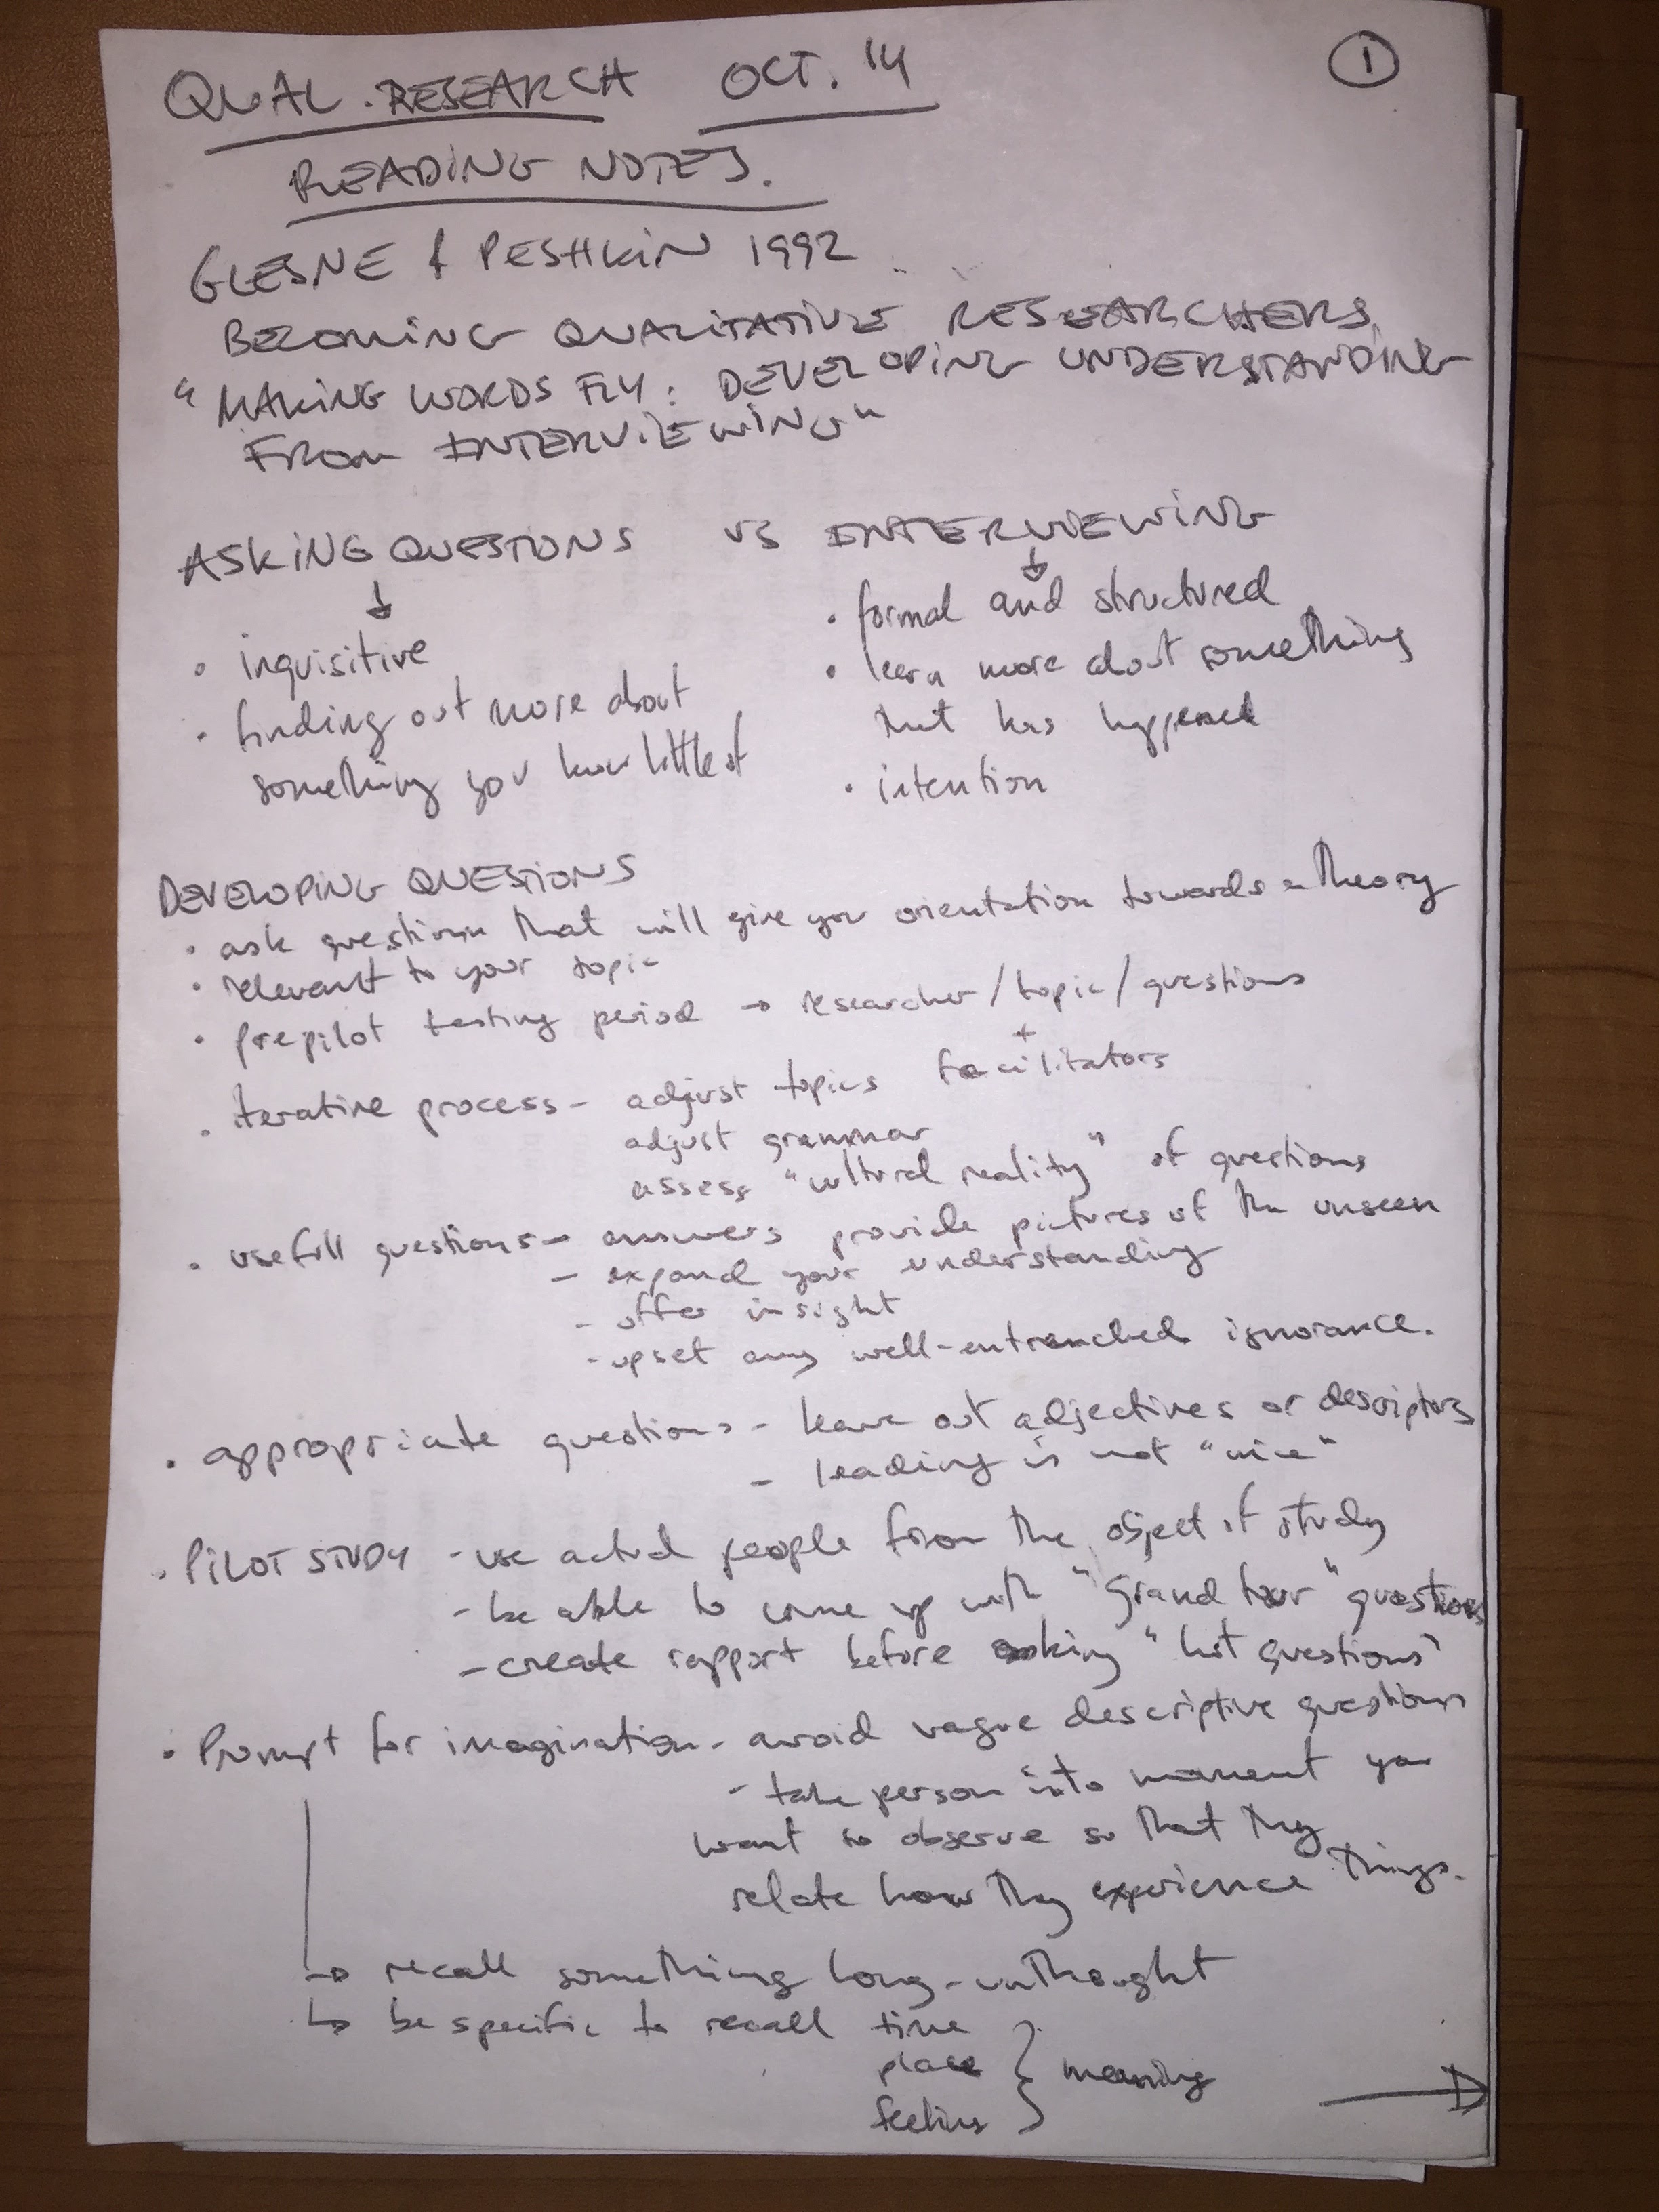 QUAL. RESEARCH OCT. '14
1
READING NOTES.
GLESNE & PESHKIN 1992
BECOMING QUALITATIVE RESEARCHERS,
"MAKING WORDS FLY: DEVELOPING UNDERSTANDING
FROM INTERVIEWING"
ASKING QUESTIONS vs INTERVIEWING
↓ ↓
• inquisitive
• finding out more about
something you know little of
• formal and structured
• learn more about something
that has happened
• intention
DEVELOPING QUESTIONS
• ask questions that will give you orientation towards a theory
• relevant to your topic
• prepilot testing period → researcher/topic/questions
+
facilitators
• iterative process - adjust topics
adjust grammar
assess "cultural reality" of questions
• usefull questions - answers provide pictures of the unseen
- expand your understanding
- offer insight
- upset any well-entrenched ignorance.
• appropriate questions - leave out adjectives or descriptors
- leading is not "nice"
• PILOT STUDY - use actual people from the object of study
- be able to come up with "grand tour" questions
- create rapport before asking "hot questions"
• Prompt for imagination - avoid vague descriptive questions
- take person into moment you
want to observe so that they
relate how they experience things.
→ recall something long-unthought
↳ be specific to recall time
place } meaning
feelins
→